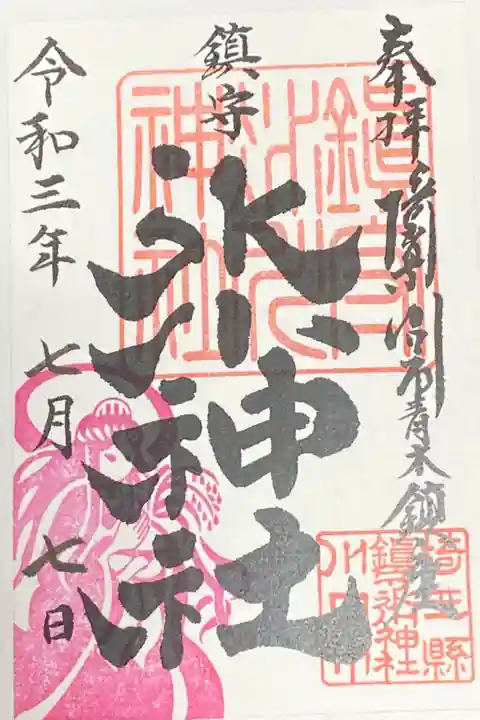 奉拝 川口市青木鎮座
鎮守
氷川神社
令和三年 七月 七日
鎮守
氷川
神社
埼玉縣
鎮守氷川神社
川口市